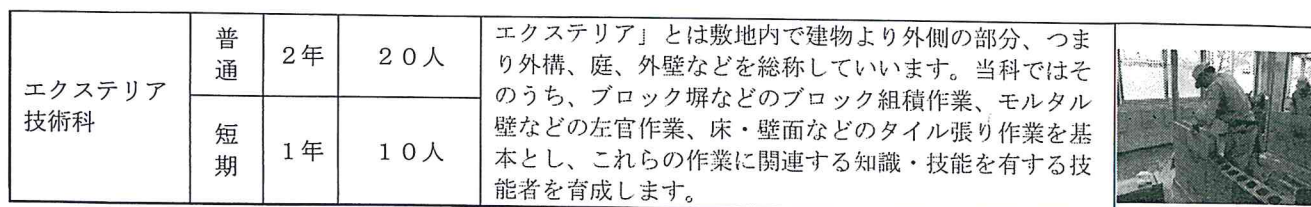 エクステリア
技術科
普通
2年
20人
短期
1年
10人
エクステリア」とは敷地内で建物より外側の部分、つま
り外構、庭、外壁などを総称していいます。当科ではそ
のうち、ブロック塀などのブロック組積作業、モルタル
壁などの左官作業、床・壁面などのタイル張り作業を基
本とし、これらの作業に関連する知識・技能を有する技
能者を育成します。